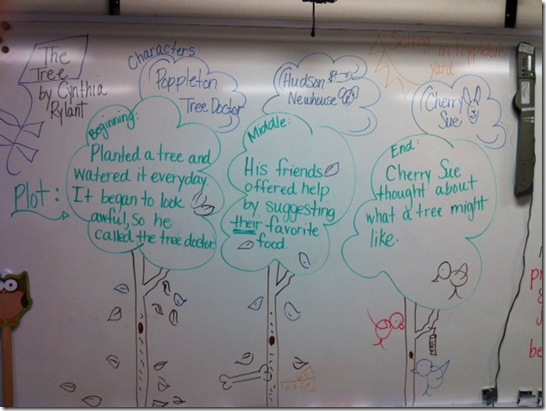 The
Tree
by Cynthia
Rylant
Characters:
Poppleton
Tree Doctor
Hudson
Newhouse
Cherry
Sue
Setting: in Poppleton's
yard
Plot:
Beginning:
Planted a tree and
watered it everyday.
It began to look
awful, so he
called the tree doctor.
Middle:
His friends
offered help
by suggesting
their favorite
food.
End:
Cherry Sue
thought about
what a tree might
like.